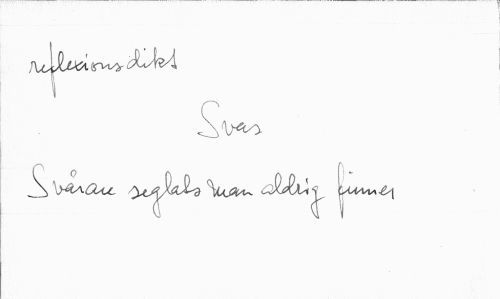 reflexionsdikt
Svar
Svårare seglats man aldrig finner